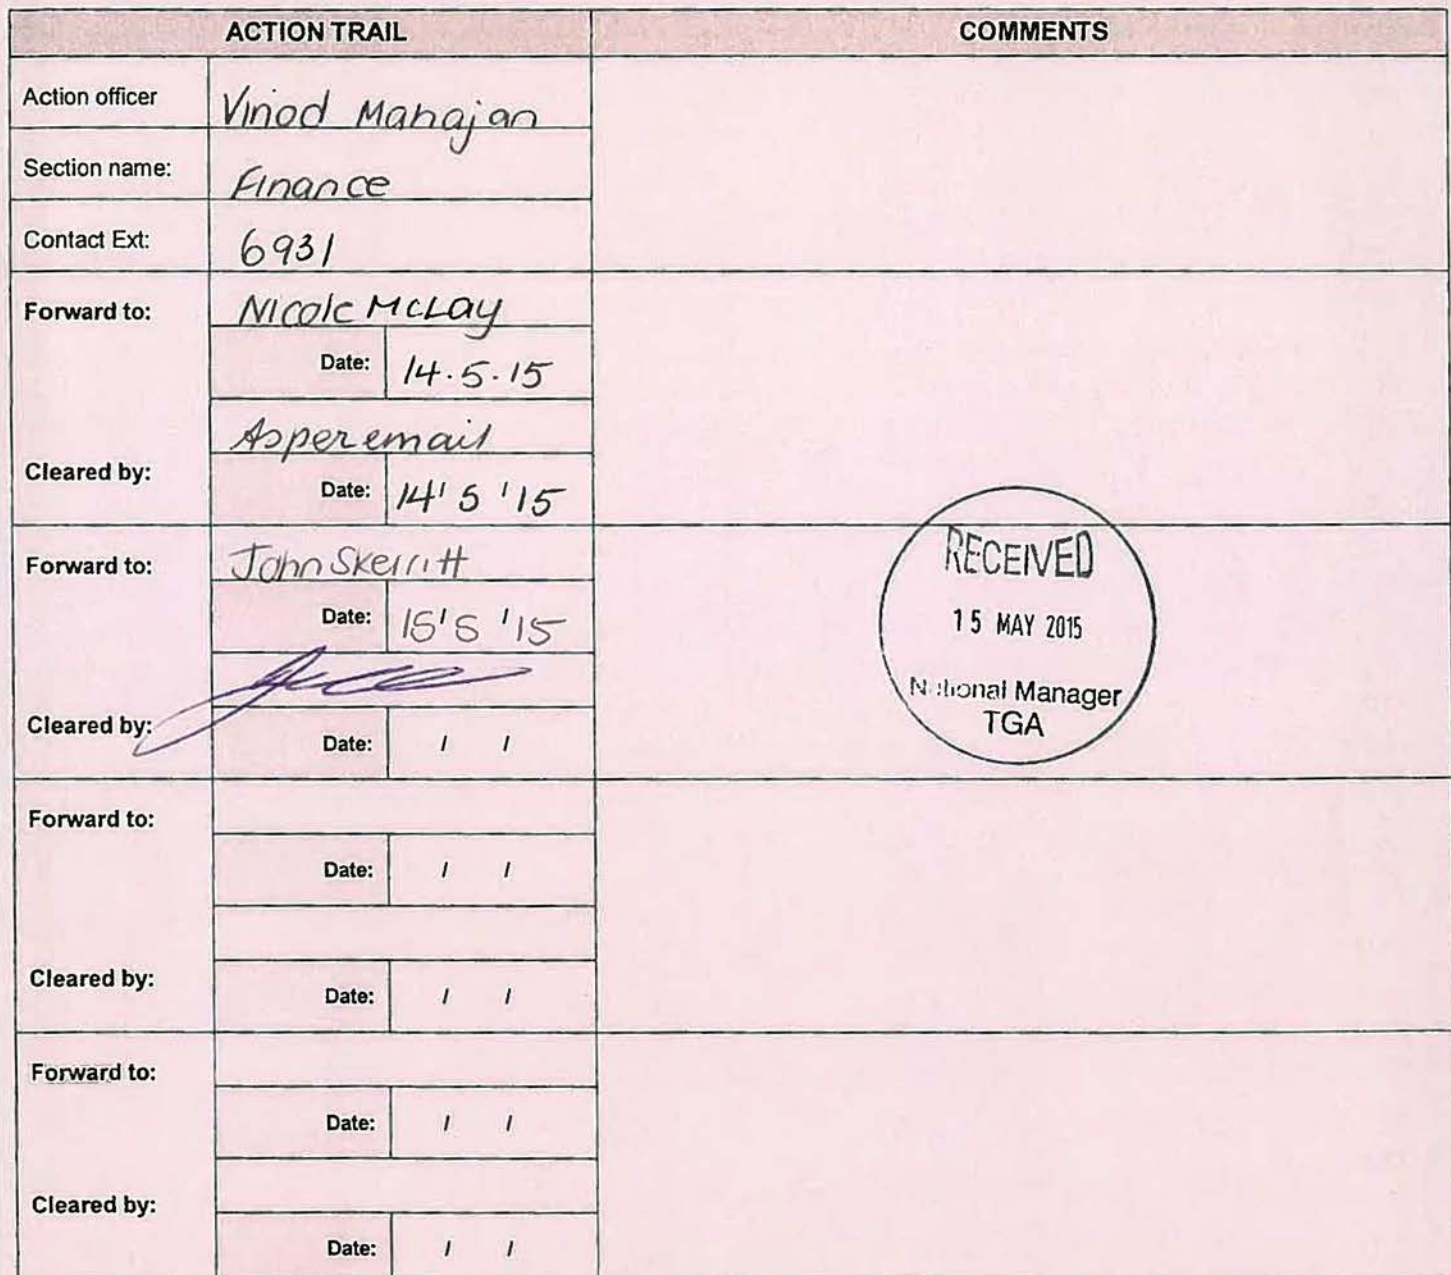 ACTION TRAIL COMMENTS
Action officer Vinod Mahajan
Section name: Finance
Contact Ext: 6931
Forward to: Nicole McLay
Date: 14.5.15
As per email
Cleared by:
Date: 14/5/15
Forward to: John Skerritt
Date: 15/5/15
Cleared by:
Date: / /
RECEIVED
15 MAY 2015
National Manager
TGA
Forward to:
Date: / /
Cleared by:
Date: / /
Forward to:
Date: / /
Cleared by:
Date: / /